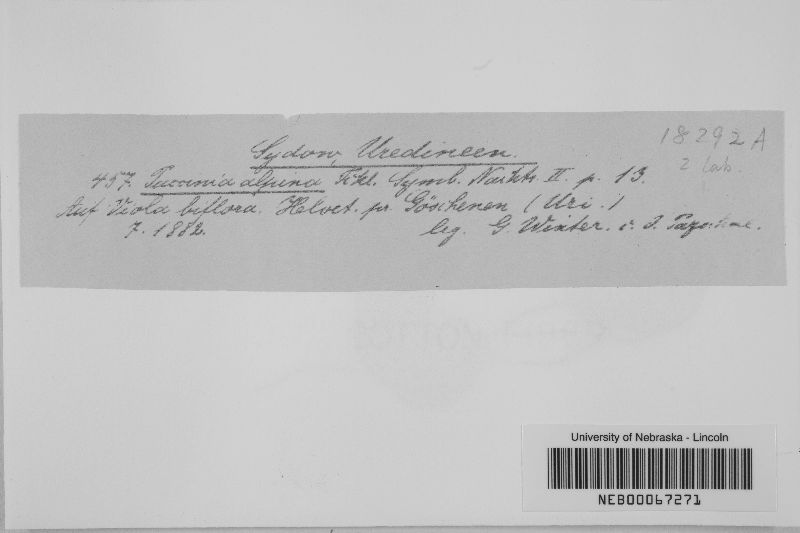 Sydow, Uredineen.
18292 A
2 lab.
457. Puccinia alpina Fckl. Symb. Nachtr. II. p. 13.
Auf Viola biflora. Helvet. pr. Göschenen (Uri.)
7. 1882. leg. G. Winter.
University of Nebraska - Lincoln
NEB00067271